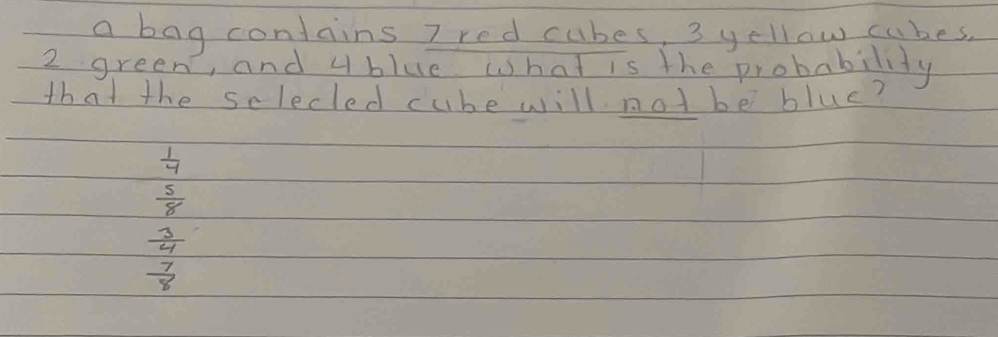 a bag contains 7 red cubes, 3 yellow cubes,
2 green, and 4 blue. What is the probability
that the selected cube will not be blue?
1/4
5/8
3/4
7/8